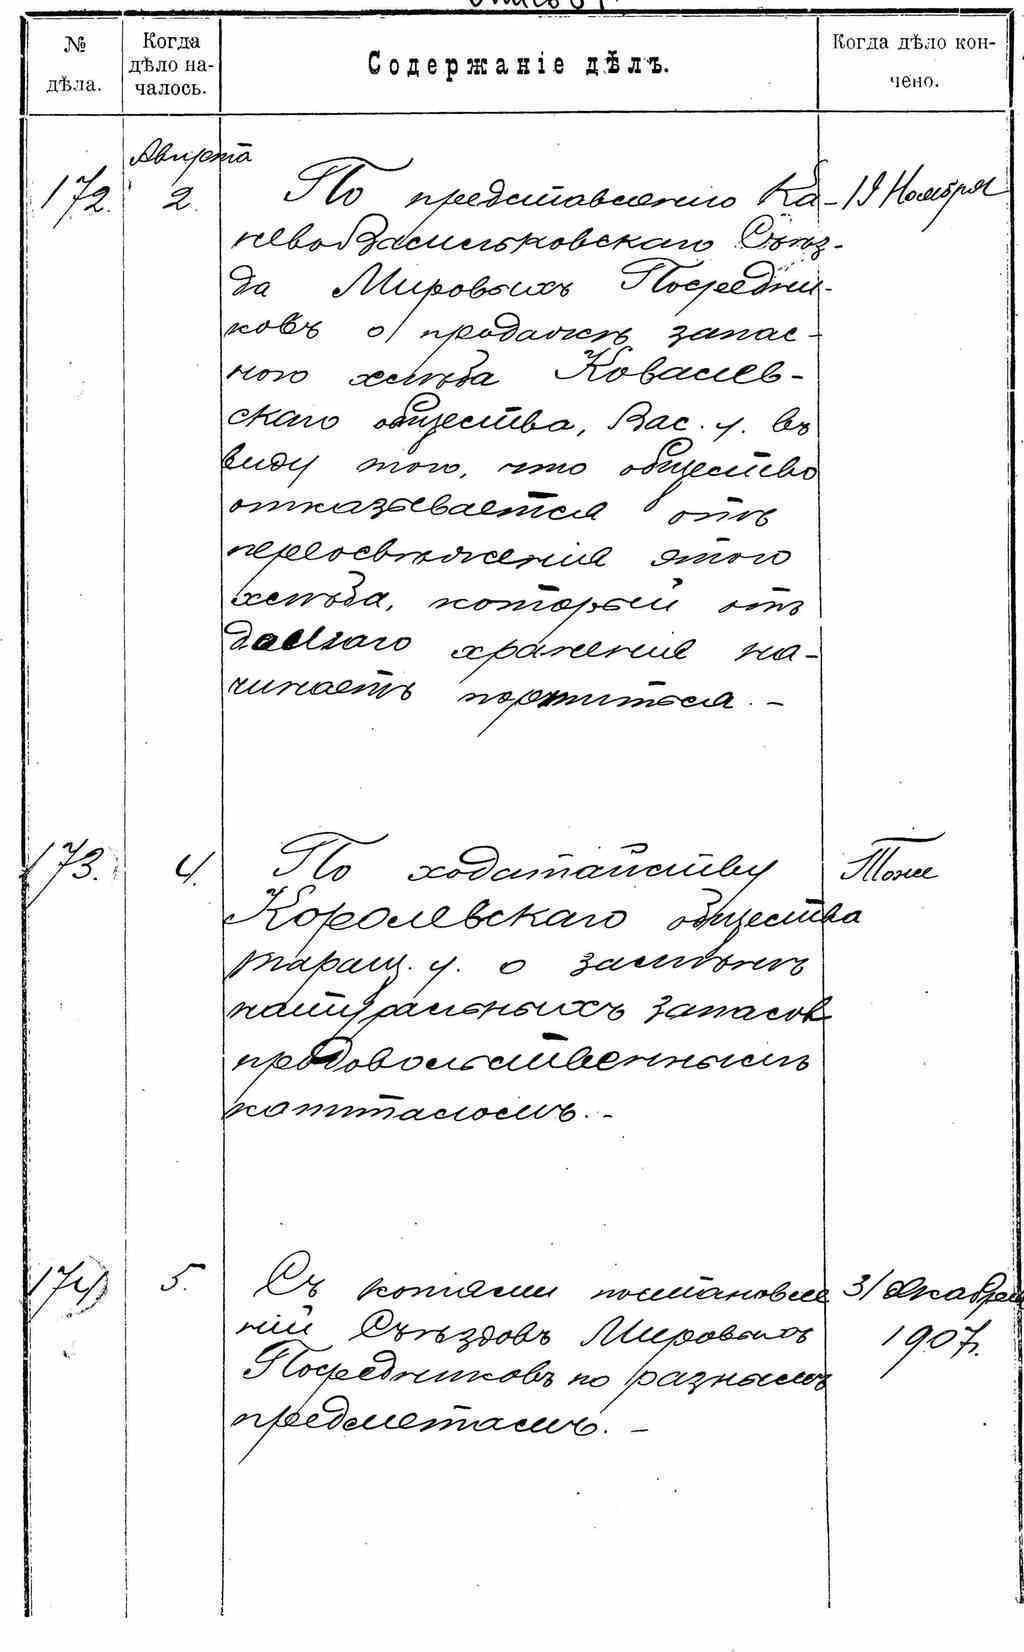 № дѣла.
Когда дѣло на-
чалось.
Содержаніе дѣлъ.
Когда дѣло кон-
чено.
Августа
172. 2. По представленію Ка- 19 Ноября
невоВасильковскаго Съѣз-
да Мировыхъ Посредни-
ковъ о продажѣ запас-
ного хлѣба Ковалев-
скаго общества, Вас. у. въ
виду того, что общество
отказывается отъ
переосвѣженія этого
хлѣба, который отъ
долгаго храненія на-
чинаетъ портиться. –
173. 4. По ходатайству Тоже
Королевскаго общества
Таращ. у. о замѣнѣ
натуральныхъ запасов
продовольственнымъ
капиталомъ. –
174 5. Съ копіями постановле 31 декабря
ній Съѣздовъ Мировыхъ 1907г.
Посредниковъ по разнымъ
предметамъ. –